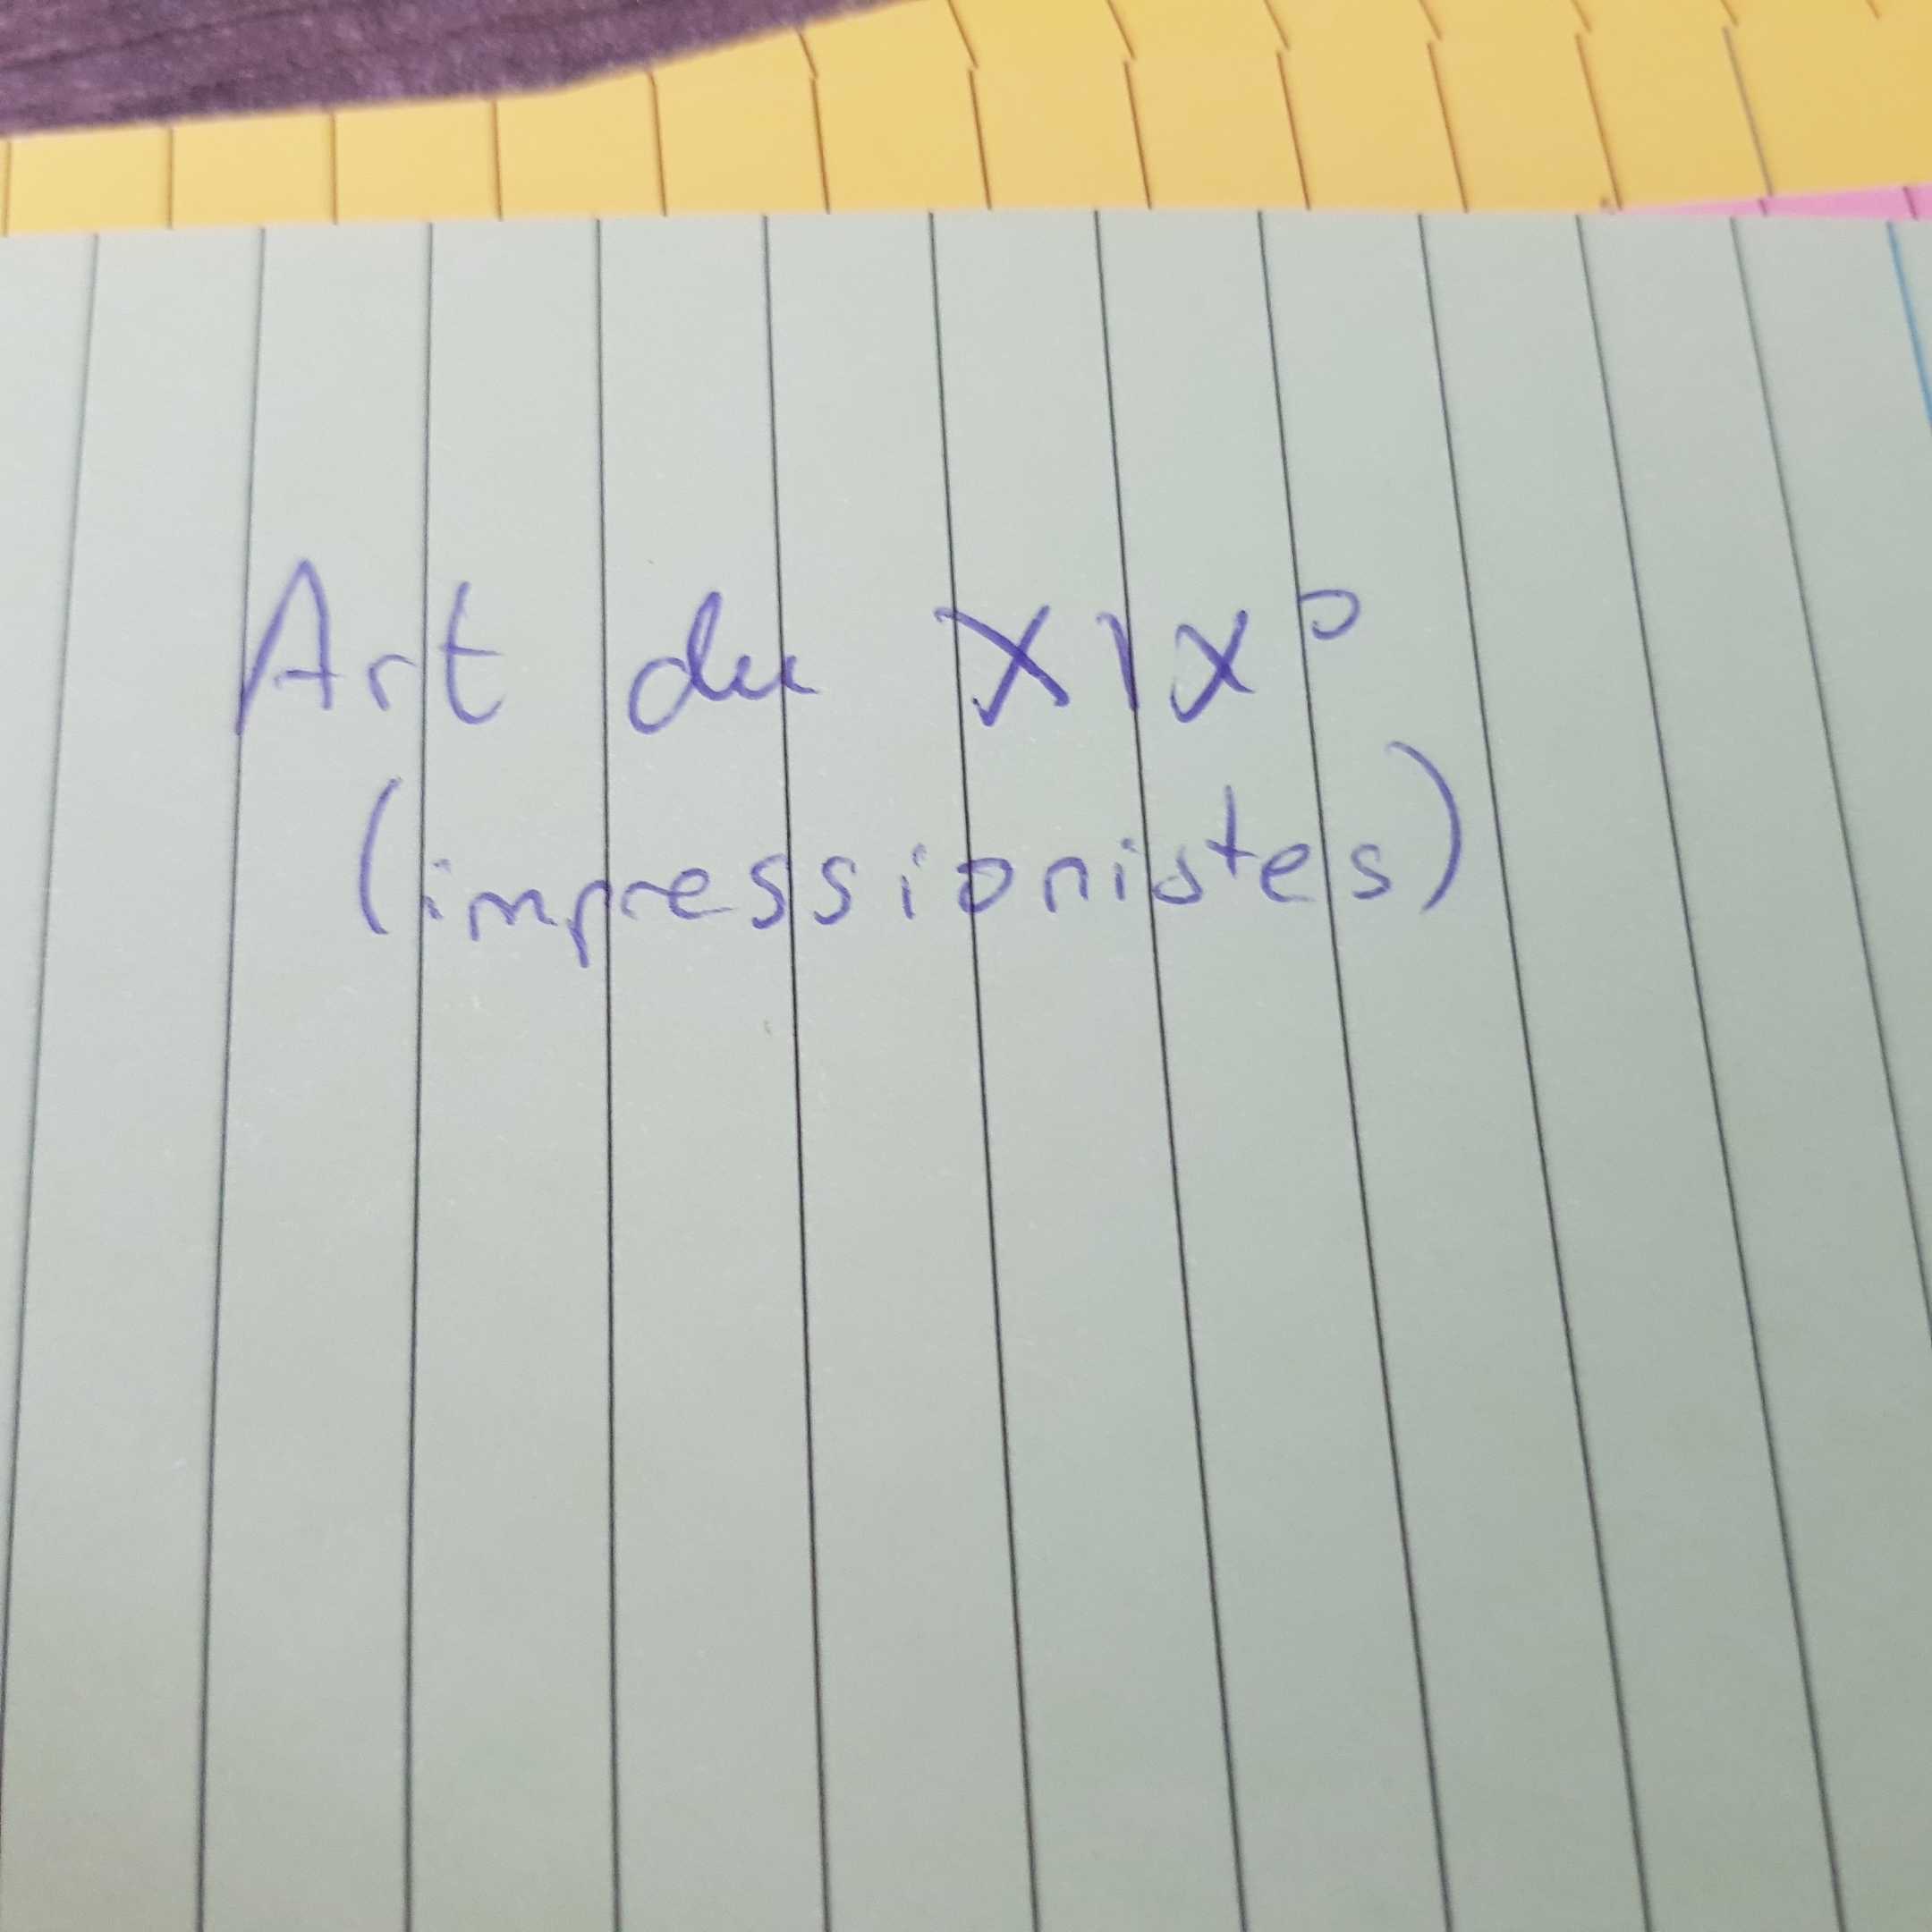 Art du XIX°
(impressionistes)